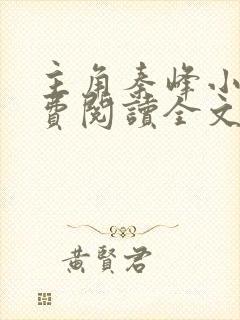 主角秦峰小
費閱讀全文
黃賢君